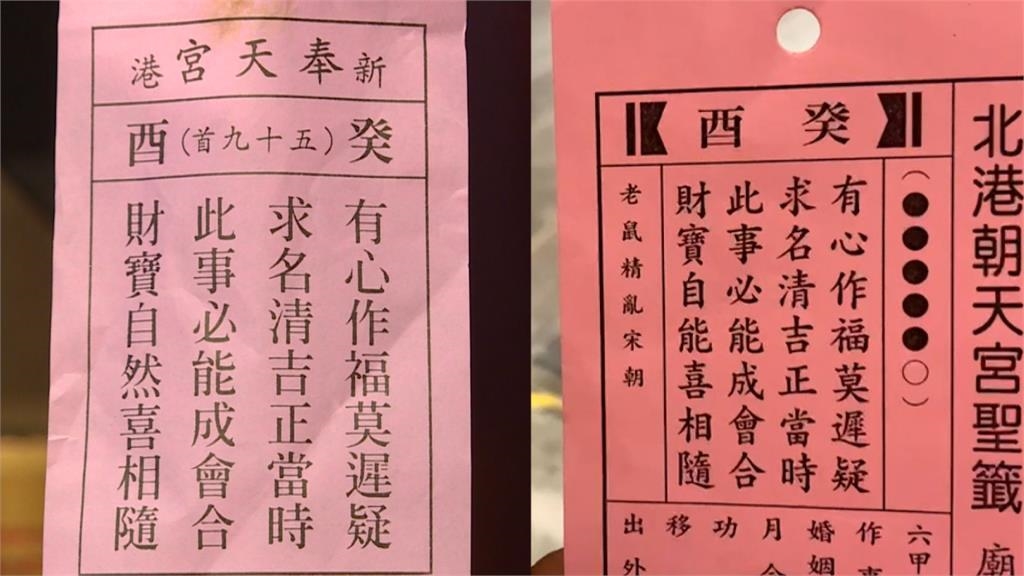 新奉天宮港
癸(五十九首)酉
有心作福莫遲疑
求名清吉正當時
此事必能成會合
財寶自然喜相隨
北港朝天宮聖籤
廟
癸酉
(●●●●●○)
有心作福莫遲疑
求名清吉正當時
此事必能成會合
財寶自能喜相隨
老鼠精亂宋朝
六甲
作事
婚姻
月令
功
移
出外